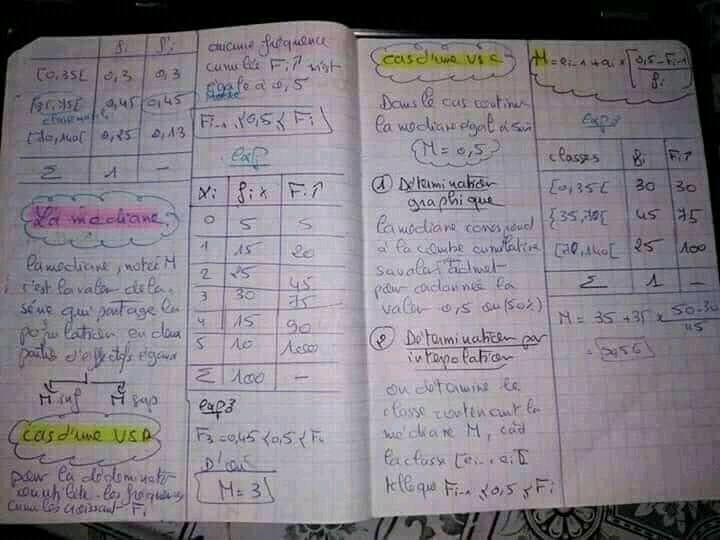 fi f'i
[0,35[ 0,3 0,3
[35,75[ 0,45 0,45
[70,140[ 0,25 0,13
Σ 1 —
La médiane
la mediane, notée M
c'est la valeur de la
série qui partage la
population en deux
parties d'effectifs égaux
M inf M sup
cas d'une VSD
pour la
les fréquences
cumulées croissant Fi
aucune fréquence
cumulée Fi↑ n'est
égale à 0,5
Fi-1 < 0,5 < Fi
exp
xi fi x Fi↑
0 5 5
1 15 20
2 25 45
3 30 75
4 15 90
5 10 1000
Σ 100 —
exp3
F3 = 0,45 < 0,5 < F4
D'où
M = 3
cas d'une VSC
Dans le cas continu
la mediane égal à
M = 0,5
1 Détermination
graphique
la mediane correspond
à la courbe cumulative
pour cadonnée la
valeur 0,5 ou (50%)
2 Détermination par
interpolation
on détermine la
classe contenant la
médiane M, càd
la classe [ei-1, ei[
telle que Fi-1 < 0,5 < Fi
M = ei-1 + ai x [0,5 - Fi-1 / fi]
classes fi Fi↑
[0,35[ 30 30
[35,70[ 45 75
[70,140[ 25 100
Σ 1 —
M = 35 + 35 x 50-30 / 45